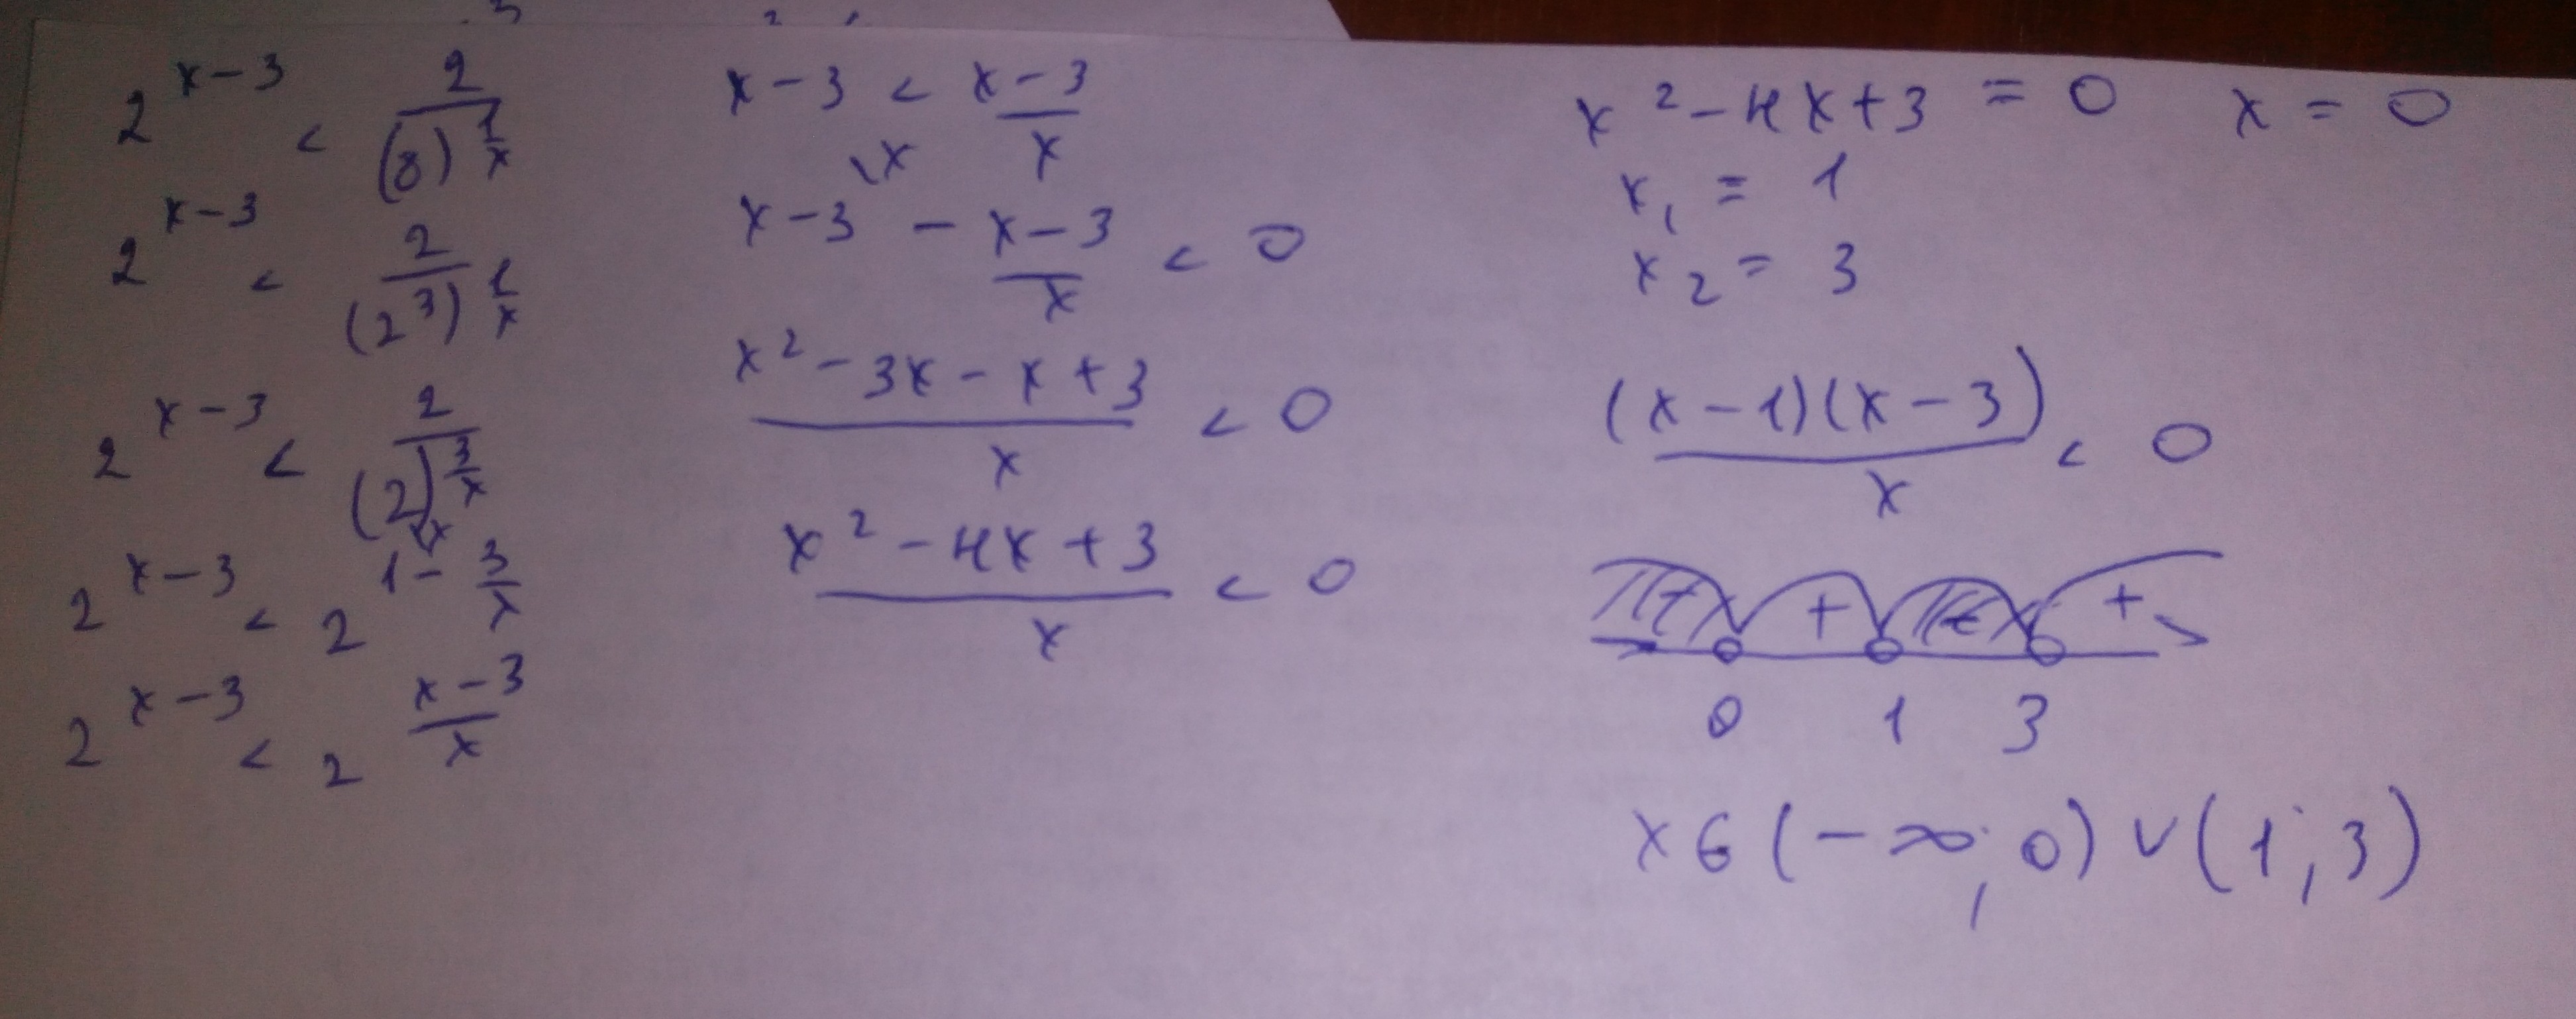 2^{x-3} < \frac{2}{(8)^{\frac{1}{x}}}
2^{x-3} < \frac{2}{(2^3)^{\frac{1}{x}}}
2^{x-3} < \frac{2}{(2)^{\frac{3}{x}}}
2^{x-3} < 2^{1-\frac{3}{x}}
2^{x-3} < 2^{\frac{x-3}{x}}
x-3 < \frac{x-3}{x}
x-3 - \frac{x-3}{x} < 0
\frac{x^2-3x-x+3}{x} < 0
\frac{x^2-4x+3}{x} < 0
x^2-4x+3 = 0 x = 0
x_1 = 1
x_2 = 3
\frac{(x-1)(x-3)}{x} < 0
+ +
0 1 3
x ∈ (-∞; 0) ∪ (1; 3)